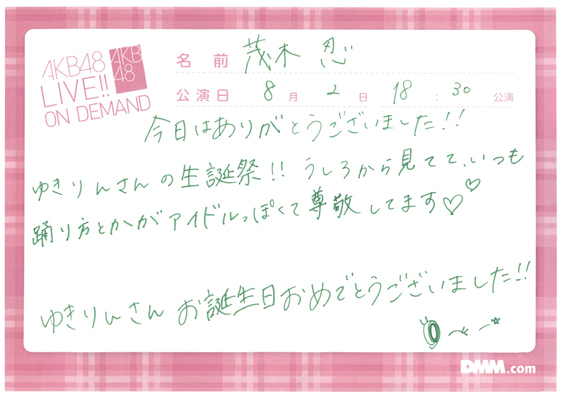 AKB48
LIVE!!
ON DEMAND
AKB
48
名前 茂木 忍
公演日 8月2日 18:30公演
今日はありがとうございました!!
ゆきりんさんの生誕祭!! うしろから見てて、いつも
踊り方とかがアイドルっぽくて尊敬してます♡♡
ゆきりんさん お誕生日おめでとうございました!!
DMM.com